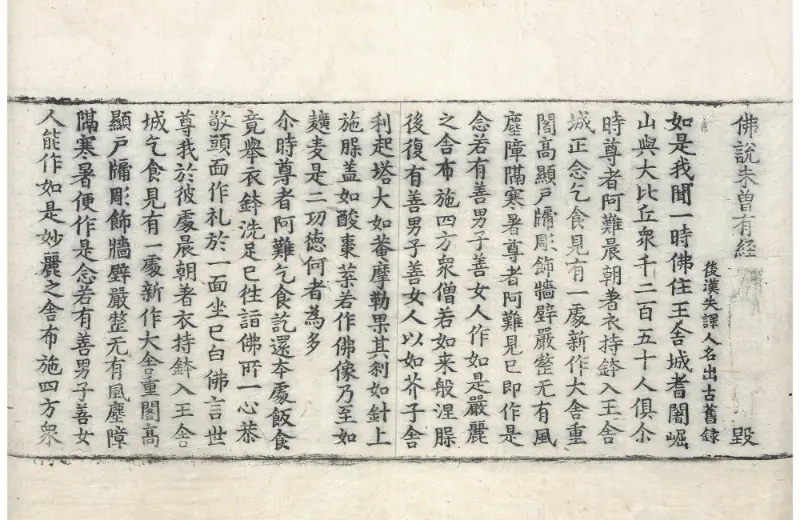 佛說未曾有經 毀
後漢失譯人名出古舊録
如是我聞一時佛住王舍城耆闍崛
山與大比丘衆千二百五十人俱尒
時尊者阿難晨朝著衣持鉢入王舍
城正念乞食見有一處新作大舍重
閣高顯戶牖彫飾牆壁嚴整无有風
塵障隔寒暑尊者阿難見已即作是
念若有善男子善女人作如是嚴麗
之舍布施四方衆僧若如来般涅槃
後復有善男子善女人以如芥子舍
利起塔大如菴摩勒果其刹如針上
施槃盖如酸棗葉若作佛像乃至如
麦是二功徳何者為多
尒時尊者阿難乞食訖還本處飯食
竟舉衣鉢洗足已往詣佛所一心恭
敬頭面作礼於一面坐已白佛言世
尊我於彼處晨朝著衣持鉢入王舍
城乞食見有一處新作大舍重閣髙
顯戶牖彫飾牆壁嚴整无有風塵障
隔寒暑便作是念若有善男子善女
人能作如是妙麗之舍布施四方衆